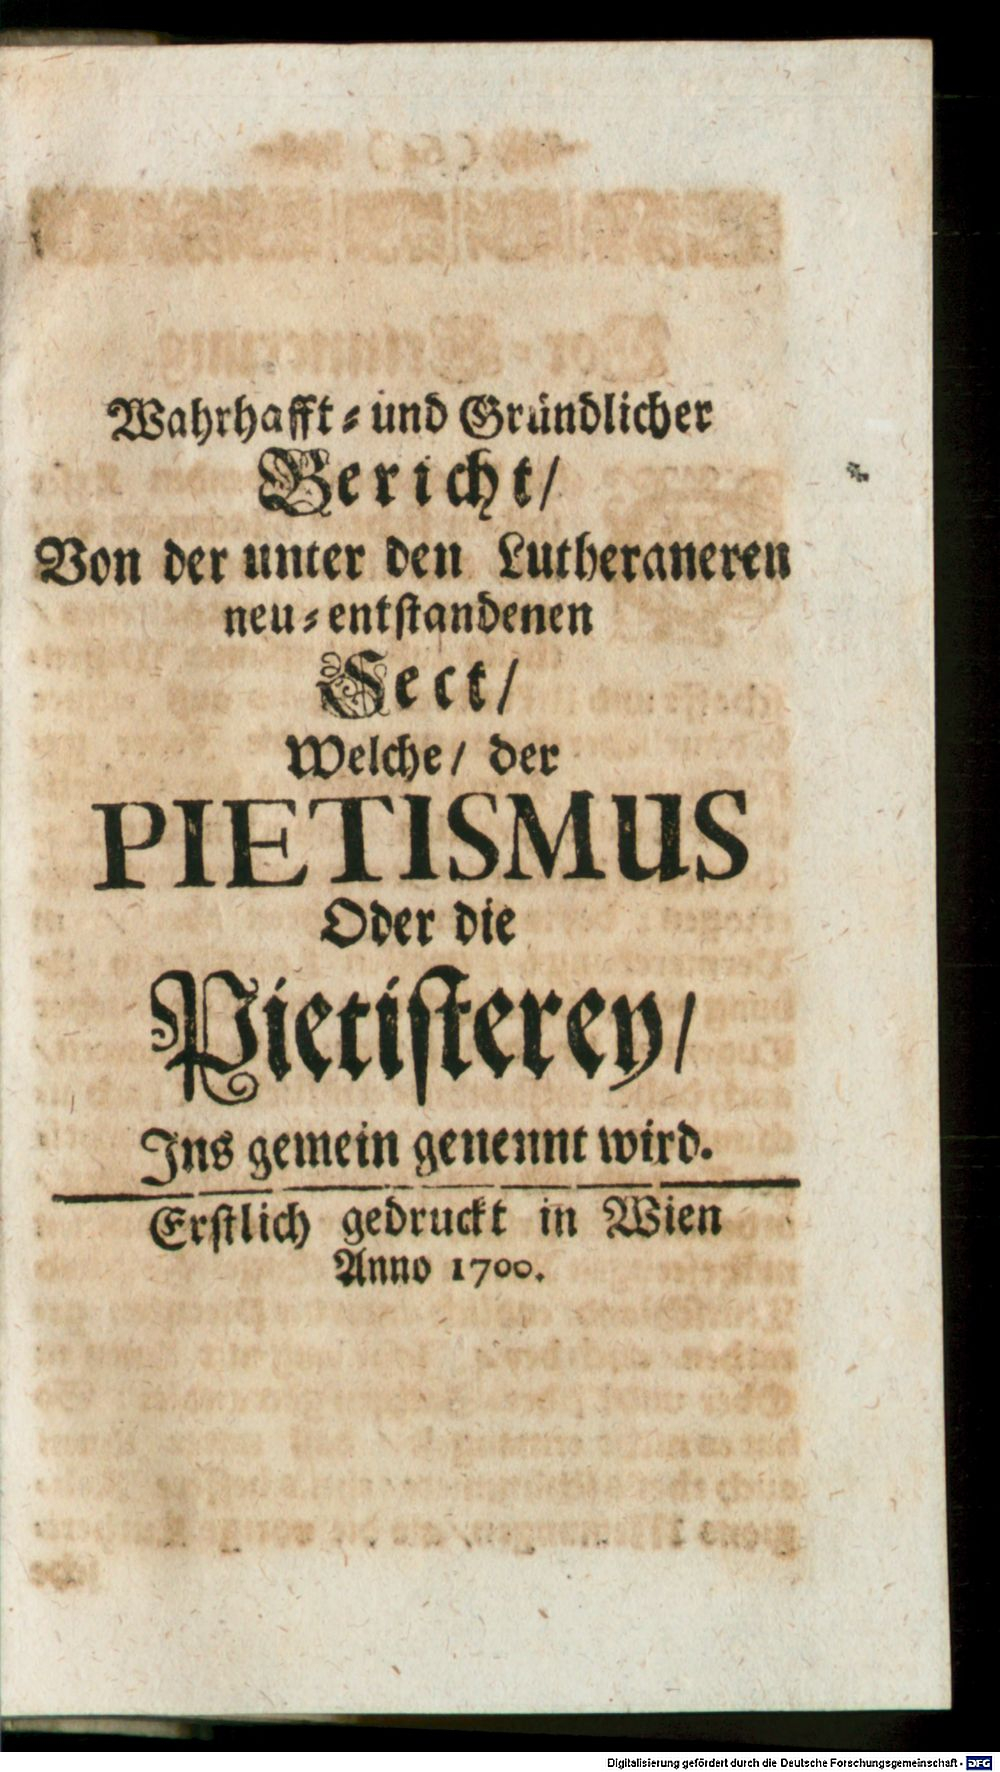 Wahrhafft- und Gründlicher
Bericht/
Von der unter den Lutheraneren
neu-entstandenen
Sect/
Welche/ der
PIETISMUS
Oder die
Pietisterey/
Ins gemein genennt wird.
Erstlich gedruckt in Wien
Anno 1700.
Digitalisierung gefördert durch die Deutsche Forschungsgemeinschaft - DFG